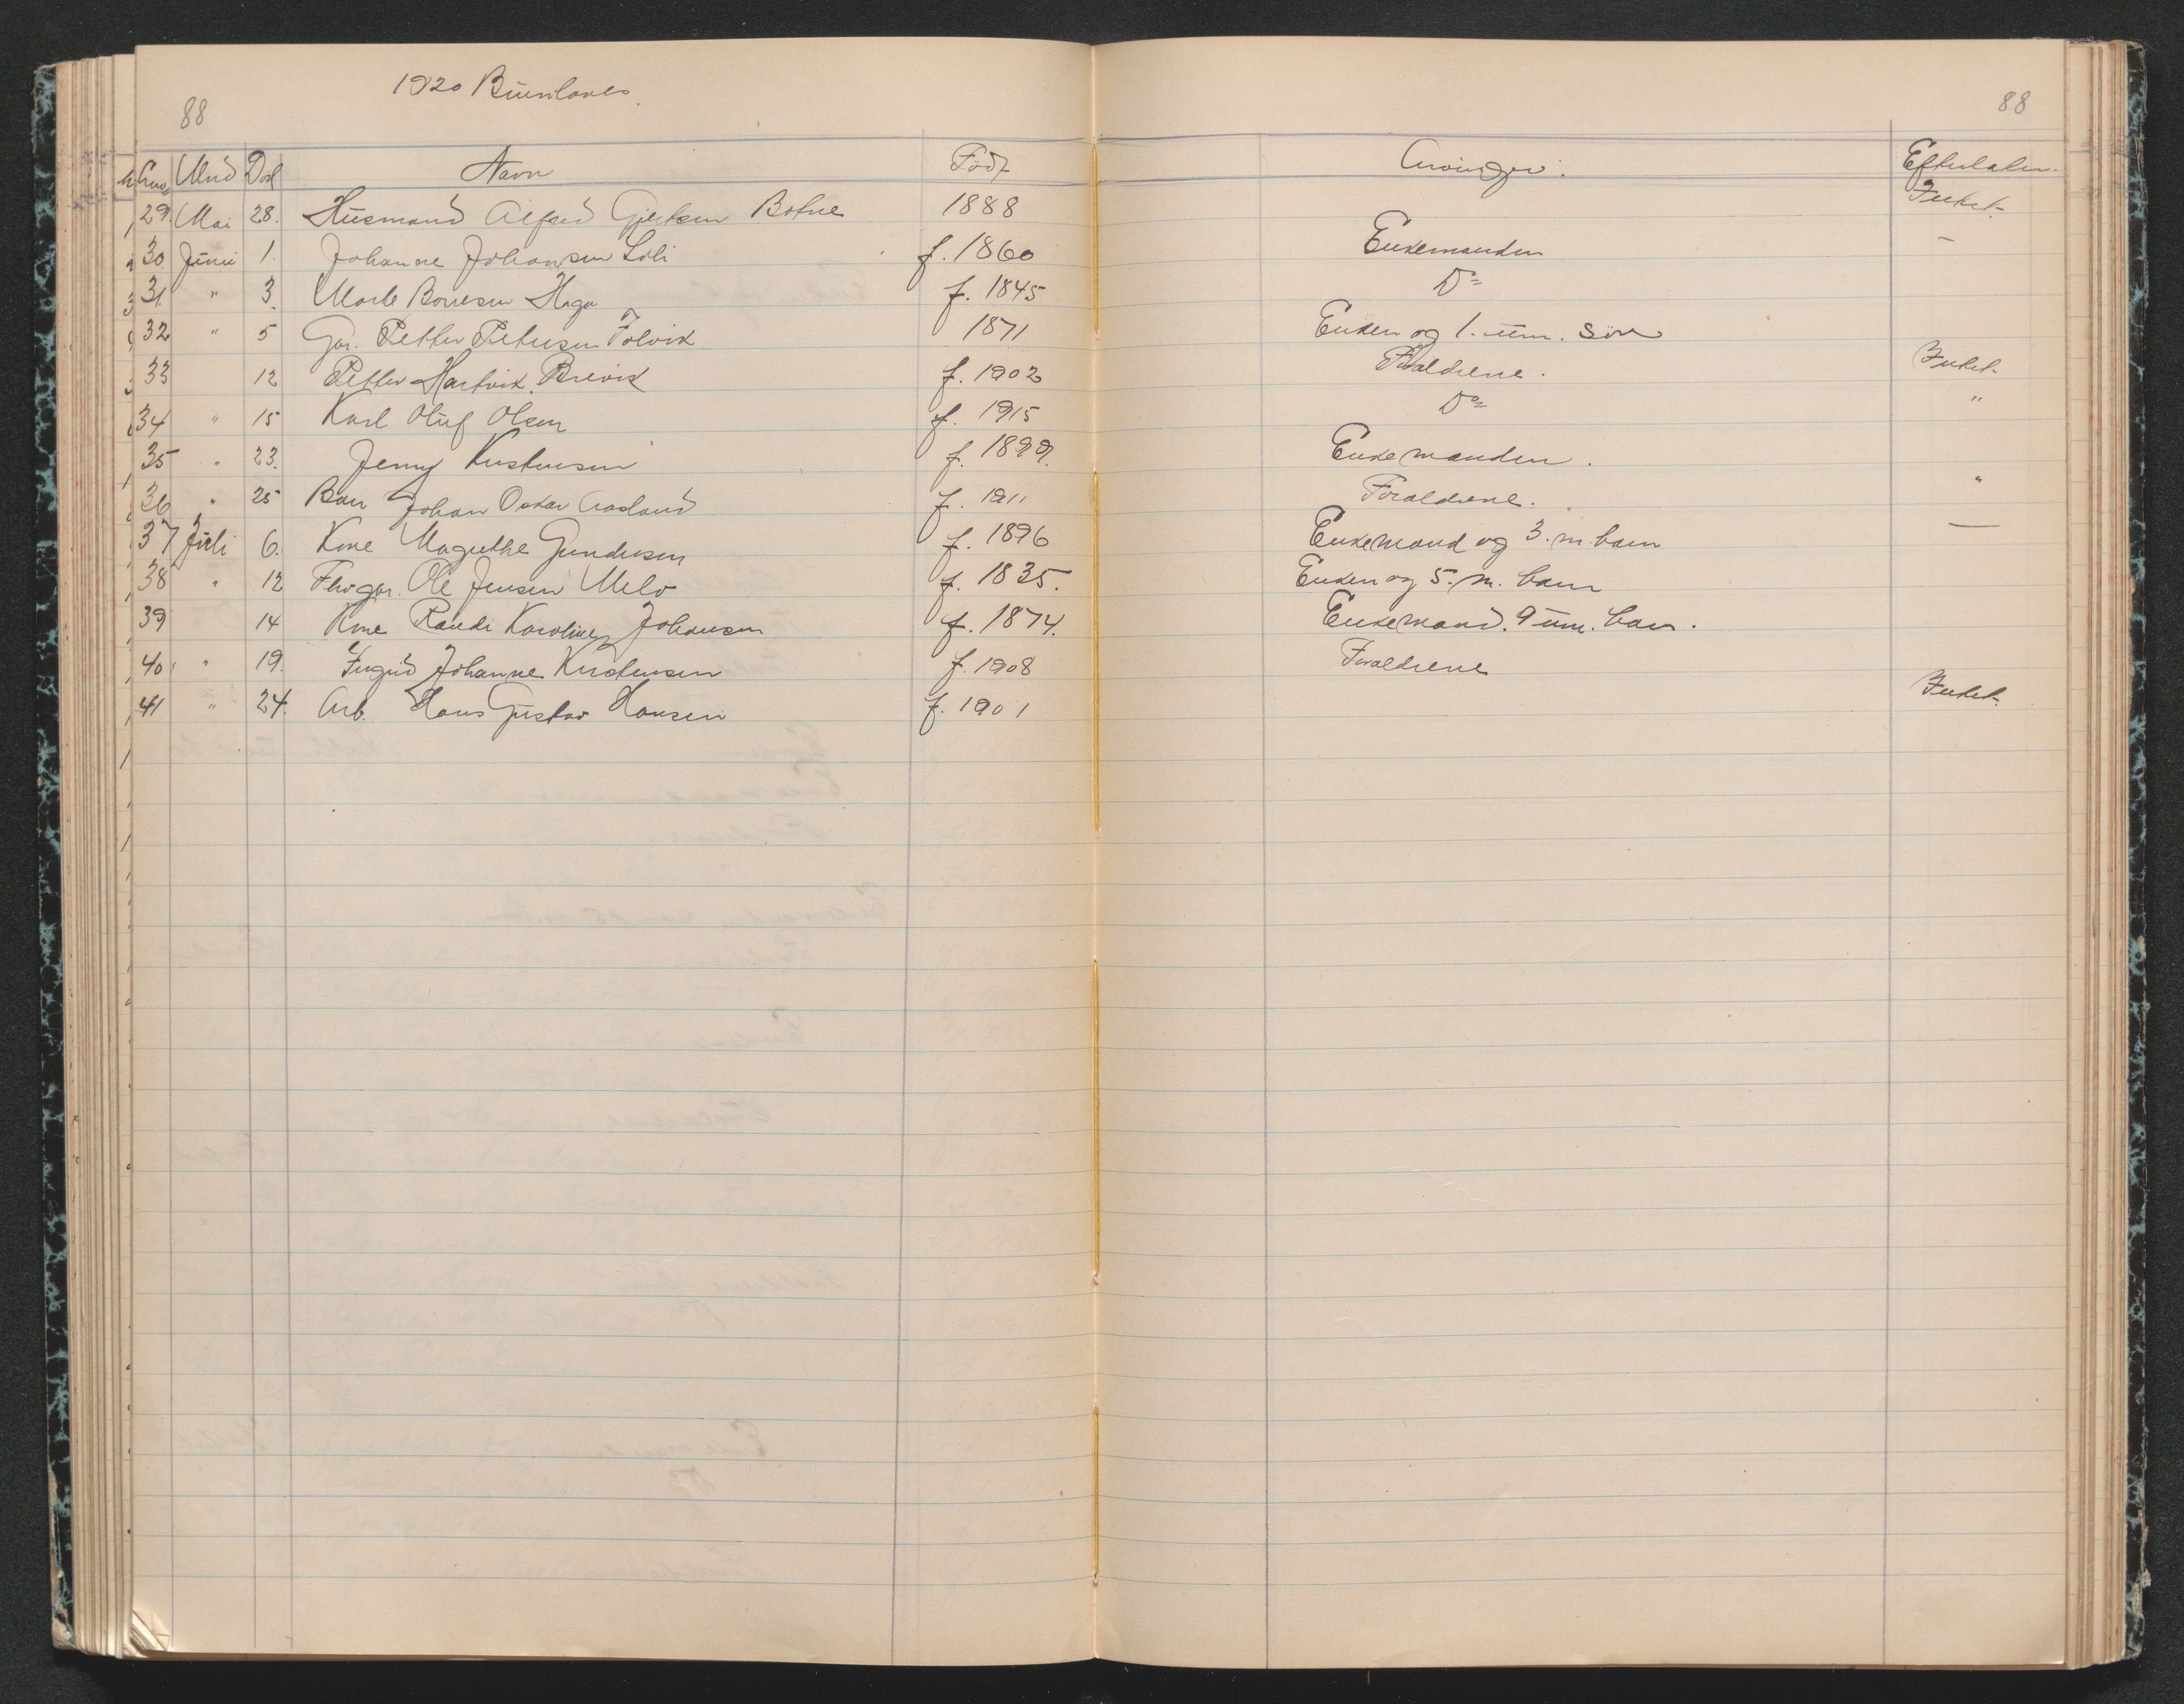 88
1920 Buenlones.
88
Mnd Död Navn Född Arvinger. Efterlaten.
29. Mai 28. Husmand Alfred Gjertsen Botne 1888 Intet.
30 Juni 1. Johanne Johansen Loli f. 1860 Enkemanden —
31. " 3. Marte Boresen Haga f. 1845 Do
32 " 5 Gar. Petter Petersen Tolvik 1871 Enken og 1. um. søn
33 12 Petter Hartvik Brevik f. 1902 Foraldrene. Intet.
34 " 15 Karl Oluf Olsen f. 1915 Do "
35 " 23. Jenny Kristensen f. 1899. Enkemanden.
36 " 25 Barn Johan Oskar Aasland f. 1911 Foraldrene. "
37 Juli 6. Kone Magrethe Gundersen f. 1896 Enkemand og 3. m. barn —
38 " 12 Ole Jensen Melo f. 1835. Enken og 5. m. barn
39 14 Kone Randi Karoline Johansen f. 1874. Enkemand. 9 um. barn.
40 " 19. Ingrid Johanne Kristensen f. 1908 Foraldrene
41 " 24. Arb. Hans Gustav Hansen f. 1901 Intet.